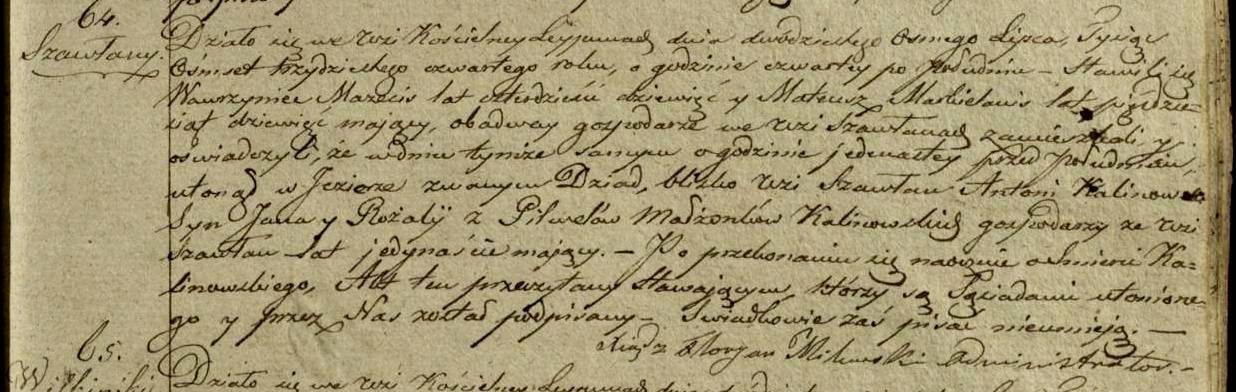 64.
Szawłany.
Działo się we wsi Kościelney Leypunach dnia dwódziestego Osmego Lipca, Tysiąc
Ośmset trzydziestego czwartego roku, o godzinie czwartey po południu – Stawili się
Wawrzyniec Mazecis lat czterdzieści dziewięć y Mateusz Markielanis lat pięćdzie-
siąt dziewięć maiący, obadway gospodarze we wsi Szawłanach zamieszkali, y
oswiadczyli, że wdniu tymże samym o godzinie jedenastey przed południem,
utonął w Jeziorze zwanym Dziad, blisko wsi Szawłan Antoni Kalinowski
Syn Jana y Rozalij z Pilwelów Małżonków Kalinowskich gospodarzy ze wsi
Szawłan lat jedynaście maiący. – Po przekonaniu się naocznie o śmierci Ka=
linowskiego, Akt ten przeczytany stawaiącym, którzy są Sąsiadami utonione-
go y przez Nas został podpisany – Swiadkowie zaś pisać nieumieią. –
Xiądz Floryan Administrator. –
65.
Działo się we wsi Kościelney Leypunach